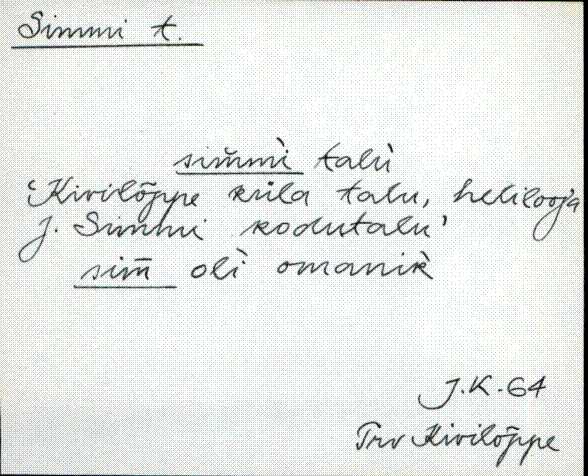 Simmi t.
sim̆mì talù
'Kivilõppe küla talu, helilooja
J. Simmi kodutalu'
sim̄ olì omanik̀
J.K. - 64
Trv Kivilõppe